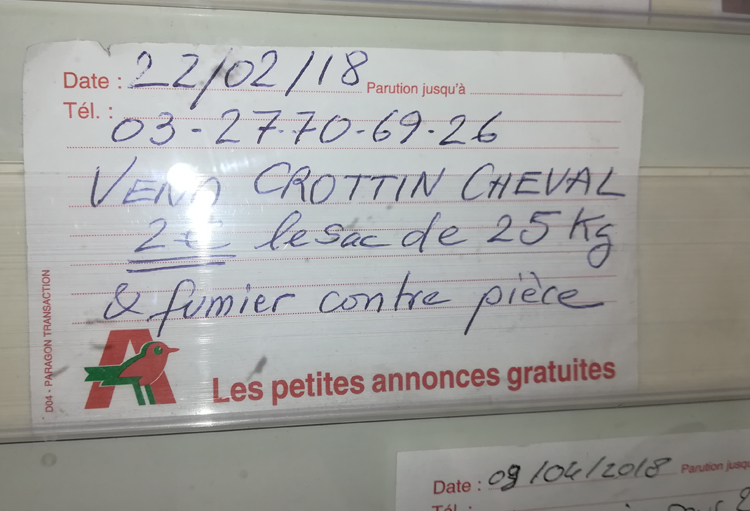 Date : 22/02/18 Parution jusqu'à
Tél. : 03-27-70-69-26
VEND CROTTIN CHEVAL
2€ le sac de 25 Kg
& fumier contre pièce
D04 - PARAGON TRANSACTION
Les petites annonces gratuites
Date : 09/04/2018 Parution jusqu
Tél.